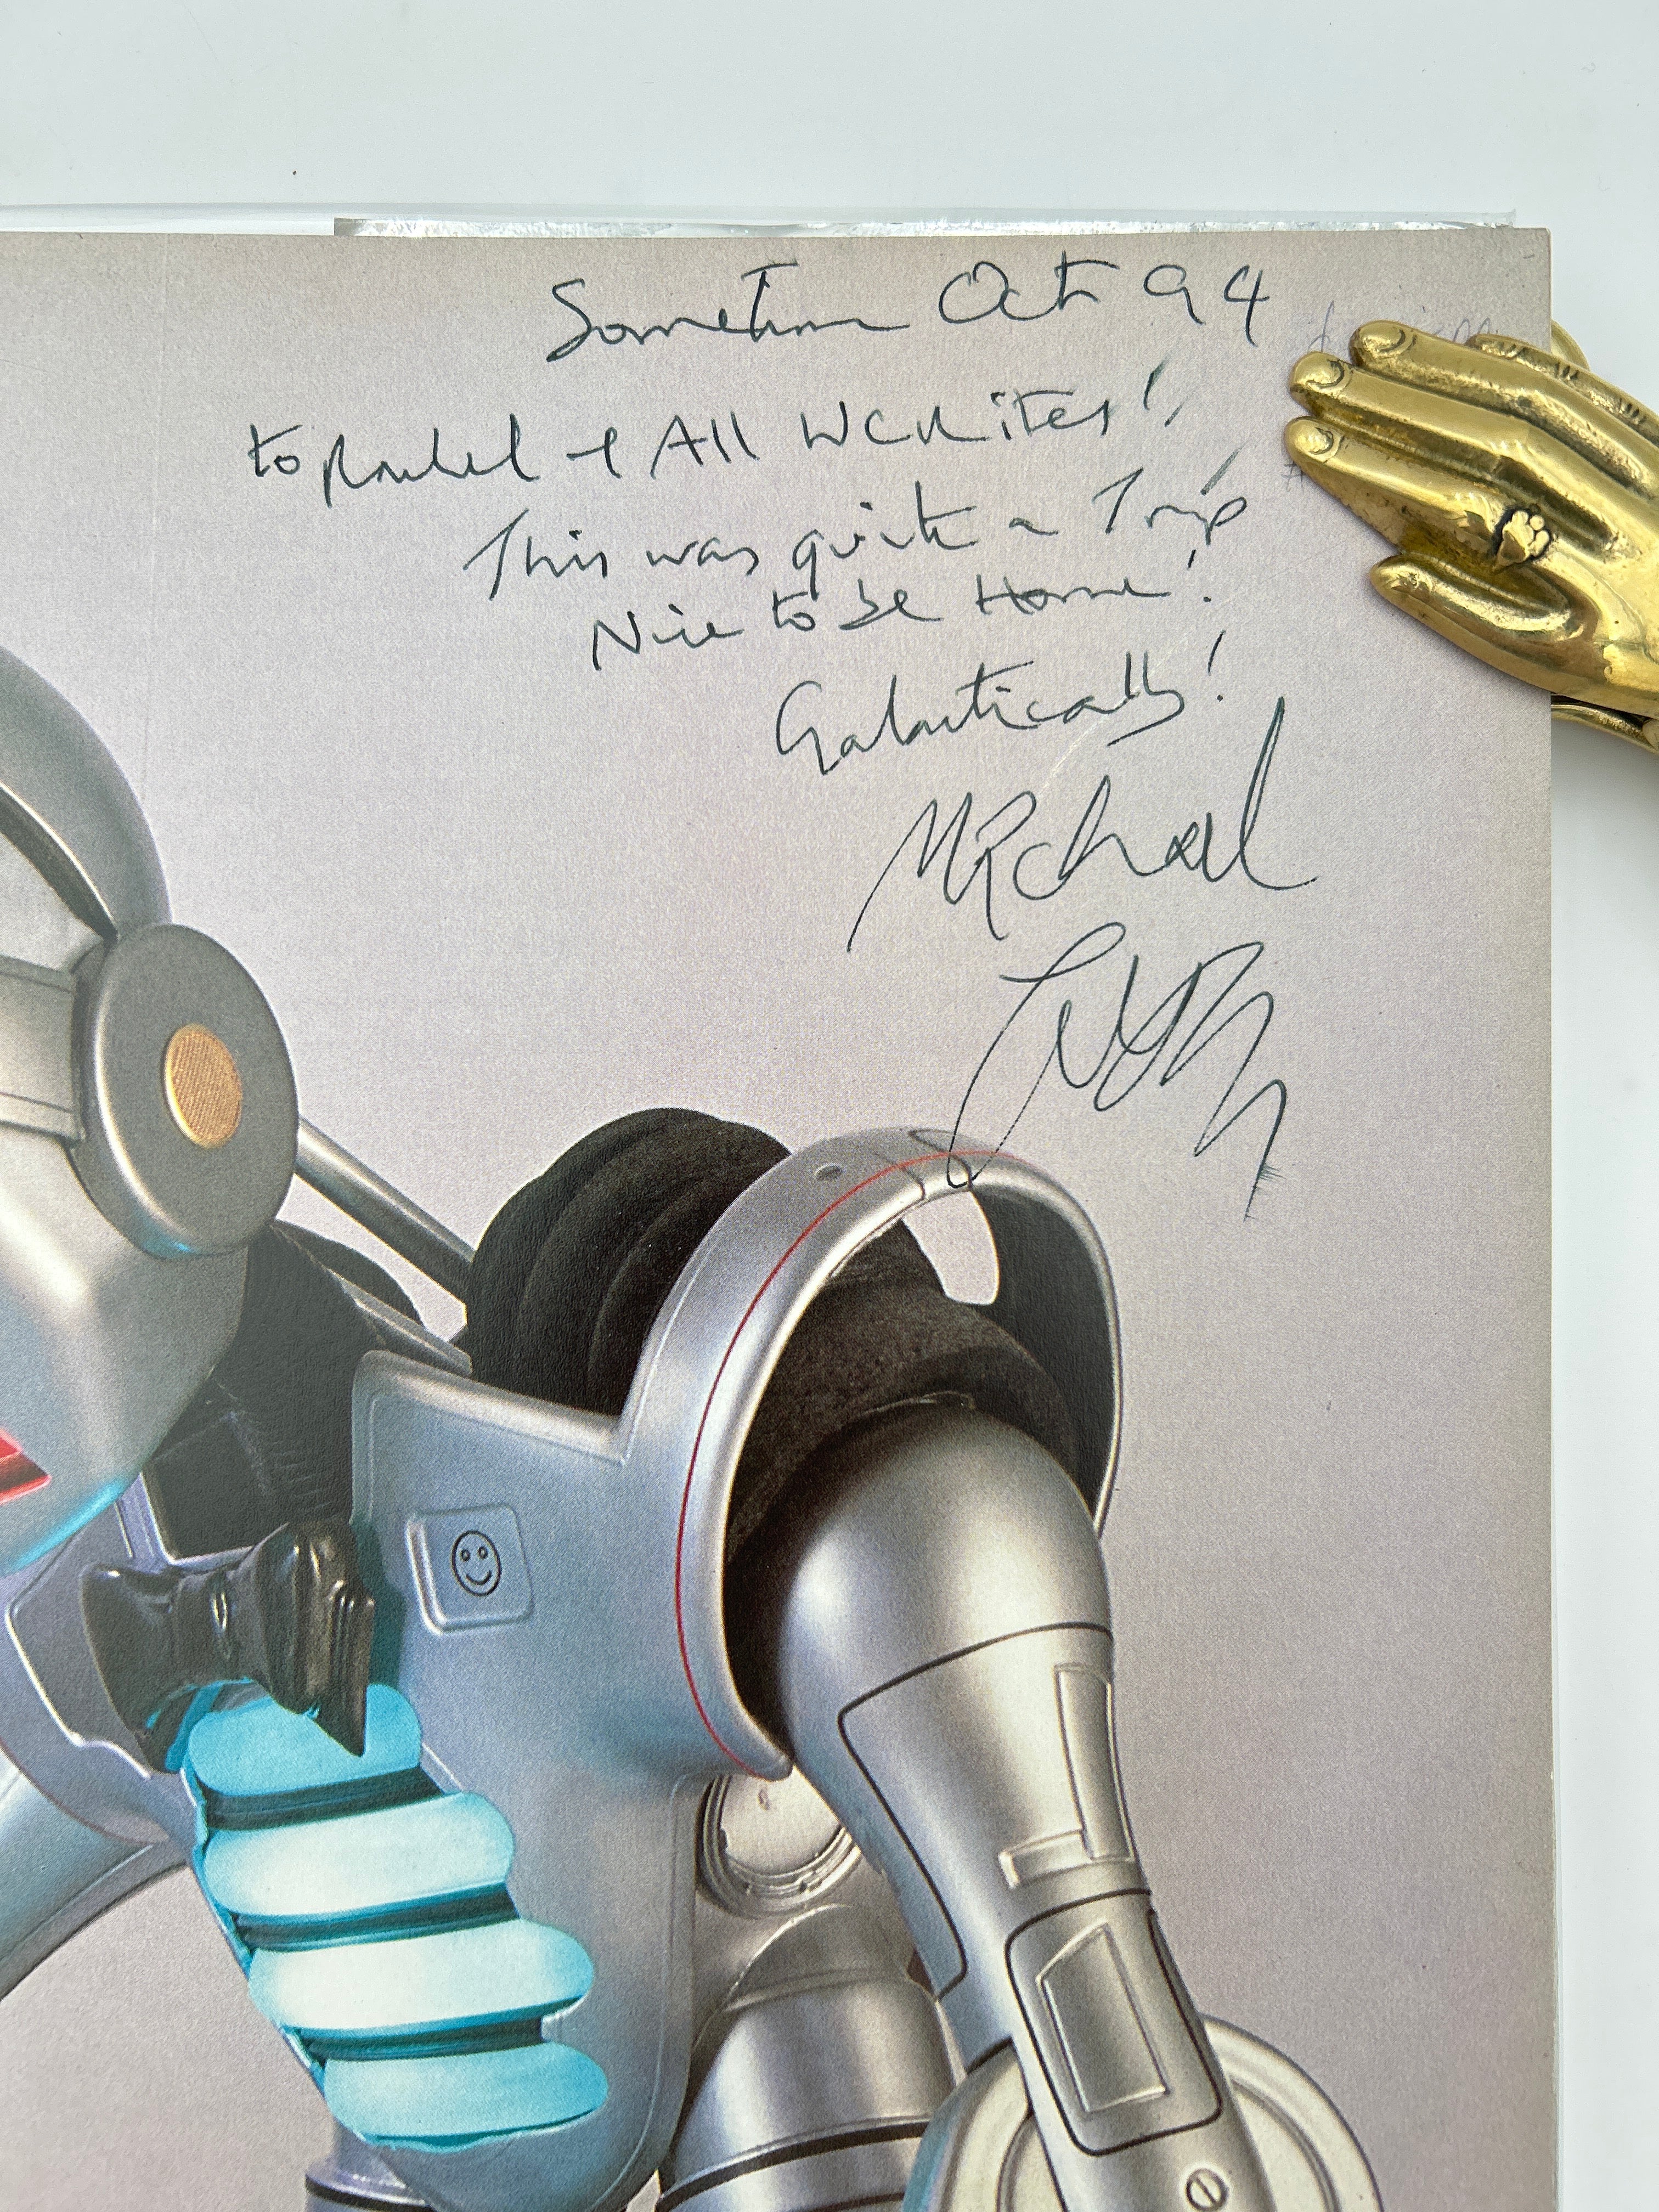 Sometime Oct 94
to Rachel + All WCRites!
This was quite a Trip
Nice to be Home!
Galactically!
Michael